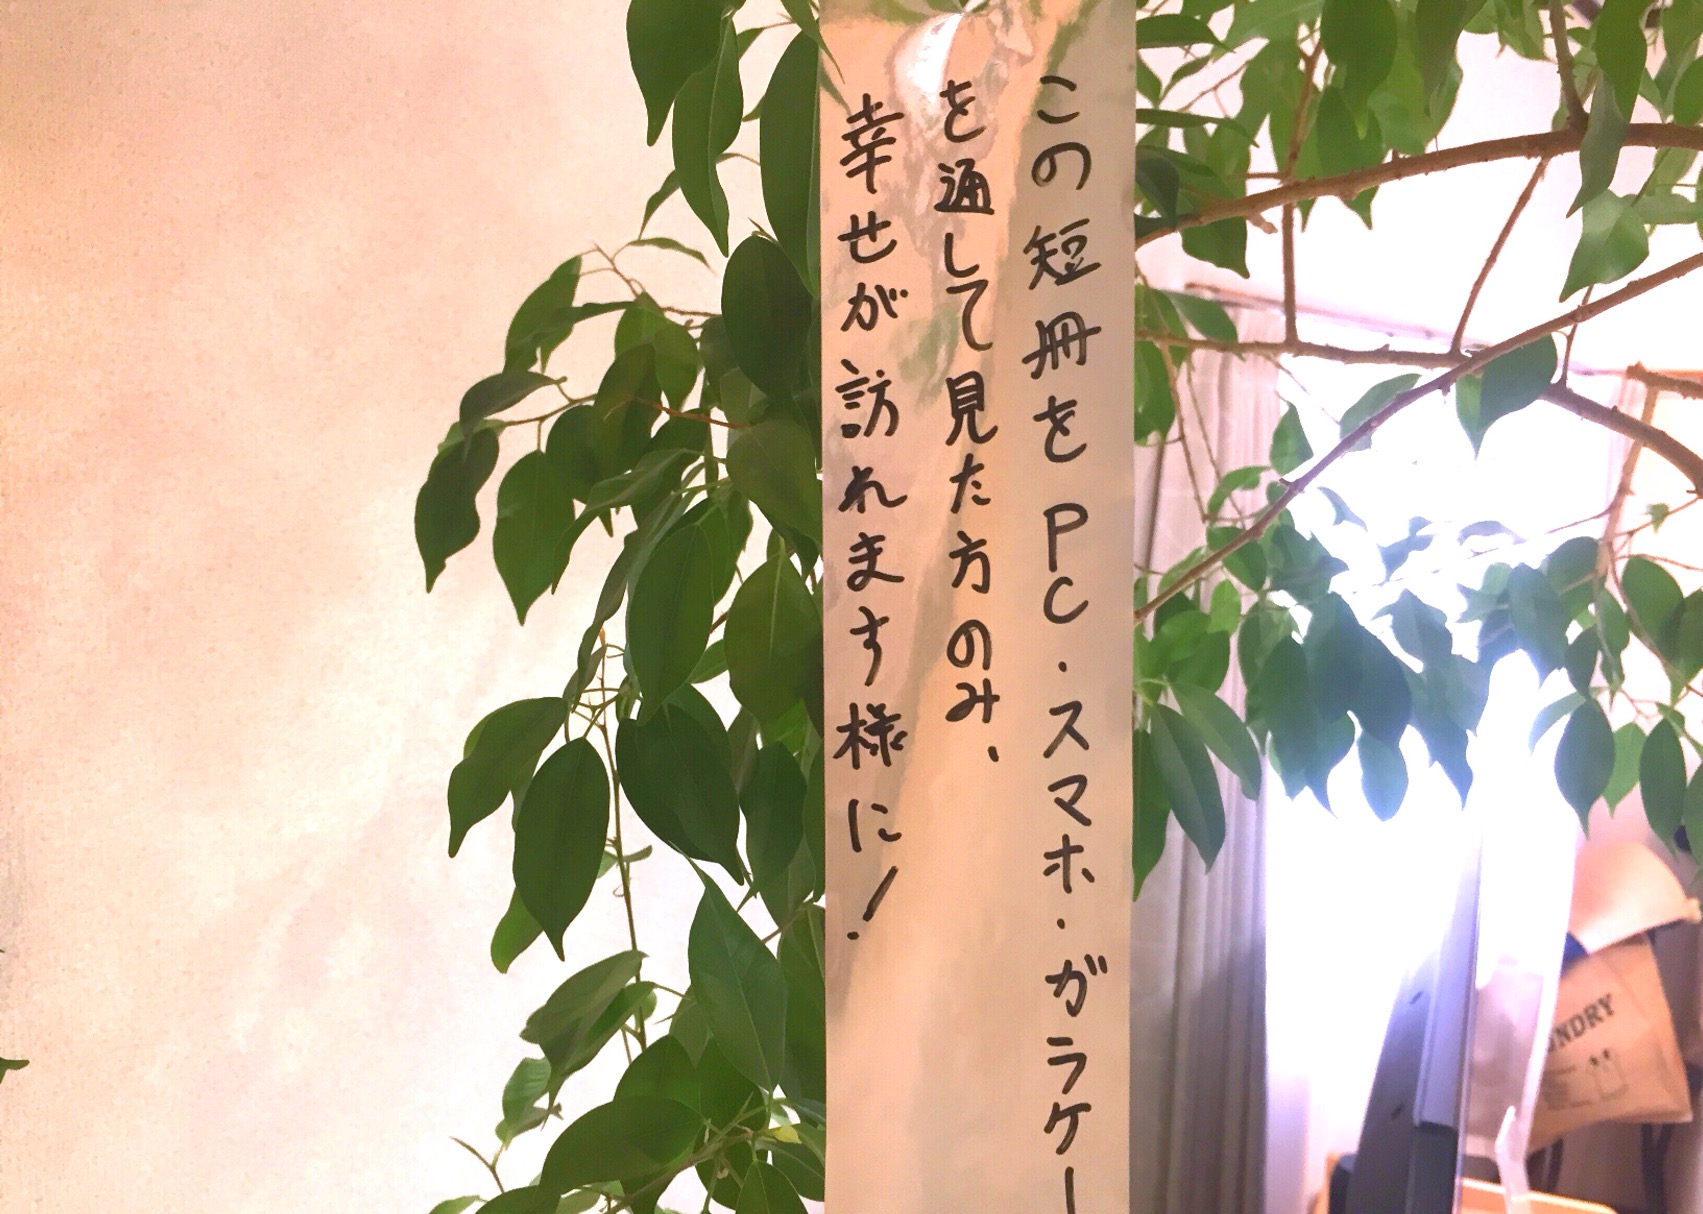 この短冊をPC・スマホ・ガラケー
を通して見た方のみ、
幸せが訪れます様に!
NDRY